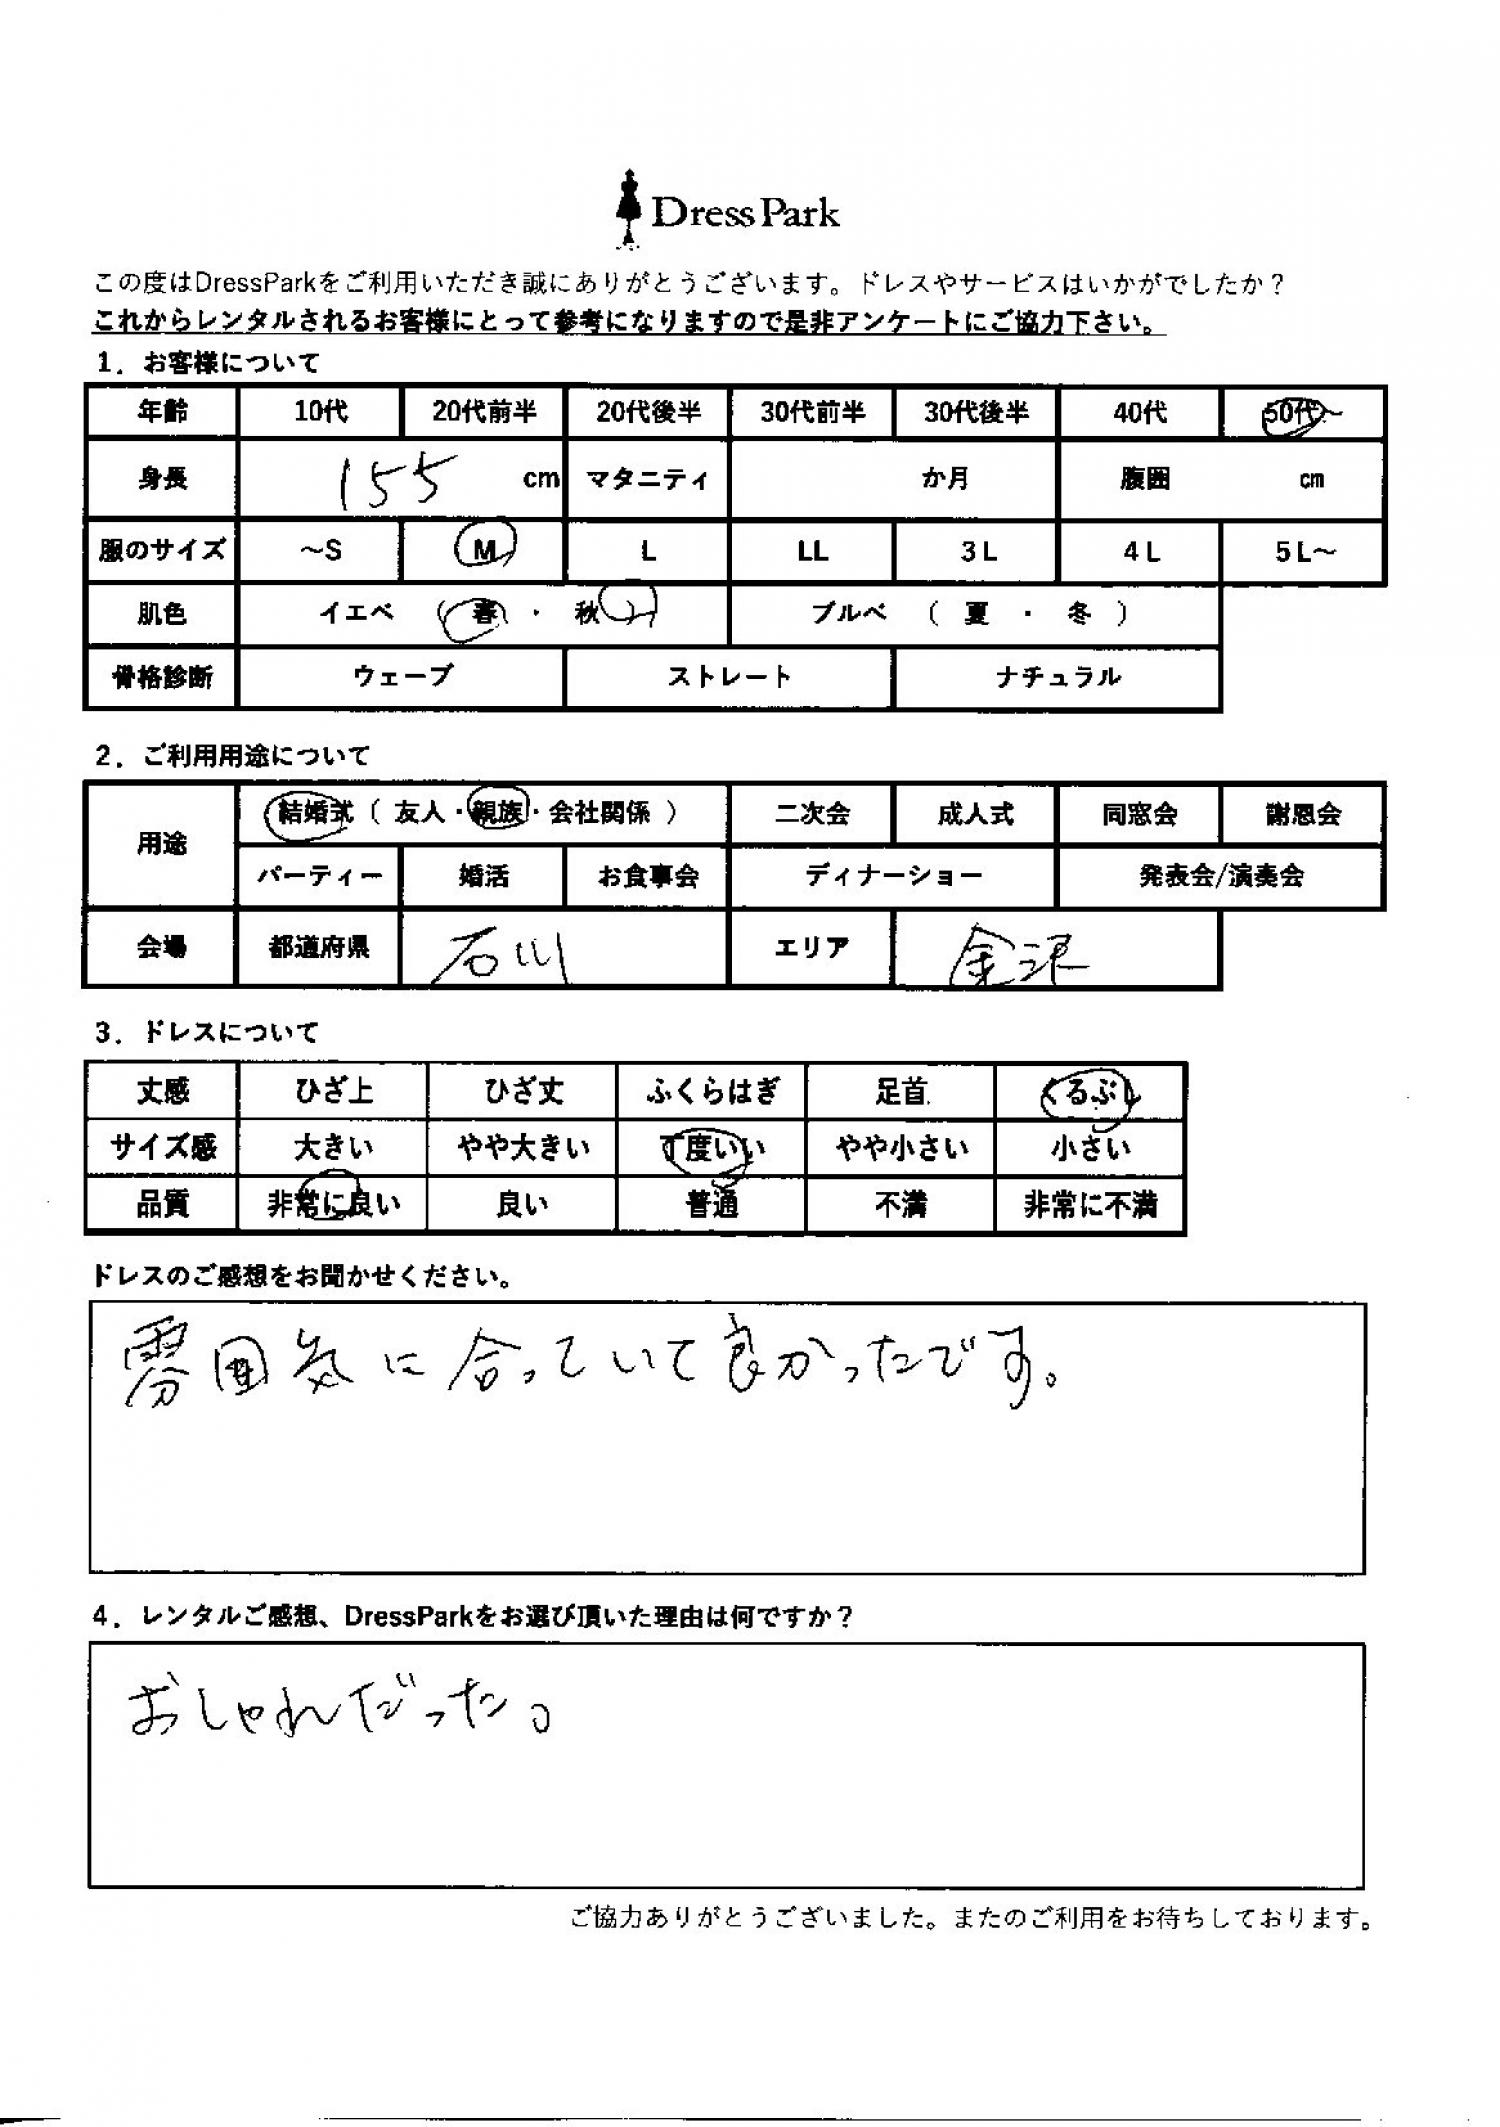 DressPark
この度はDressParkをご利用いただき誠にありがとうございます。ドレスやサービスはいかがでしたか？
これからレンタルされるお客様にとって参考になりますので是非アンケートにご協力下さい。
1．お客様について
年齢 10代 20代前半 20代後半 30代前半 30代後半 40代 50代～
身長 155 cm マタニティ か月 腹囲 cm
服のサイズ ～S M L LL 3L 4L 5L～
肌色 イエベ （ 春 ・ 秋 ） ブルベ （ 夏 ・ 冬 ）
骨格診断 ウェーブ ストレート ナチュラル
2．ご利用用途について
用途 結婚式（ 友人・親族・会社関係 ） 二次会 成人式 同窓会 謝恩会
パーティー 婚活 お食事会 ディナーショー 発表会/演奏会
会場 都道府県 石川 エリア 金沢
3．ドレスについて
丈感 ひざ上 ひざ丈 ふくらはぎ 足首 くるぶし
サイズ感 大きい やや大きい 丁度いい やや小さい 小さい
品質 非常に良い 良い 普通 不満 非常に不満
ドレスのご感想をお聞かせください。
雰囲気に合っていて良かったです。
4．レンタルご感想、DressParkをお選び頂いた理由は何ですか？
おしゃれだった。
ご協力ありがとうございました。またのご利用をお待ちしております。